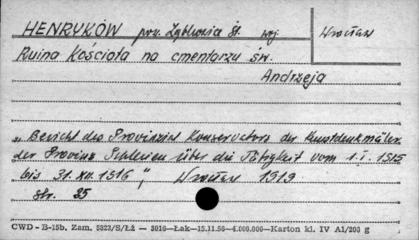 HENRYKÓW pow. Ząbkowice Śl. woj. Wrocław
Ruina Kościoła na cmentarzu św.
Andrzeja
„Bericht des Provinzial Konservators der Kunstdenkmäler
der Provinz Schlesien über die Tätigkeit vom 1.I.1915
bis 31.XII.1916", Wrocław 1919
str. 35
CWD - B-15b. Zam. 5323/S/Łż — 5016—Łak—15.11.56—4.000.000—Karton kl. IV A1/200 g